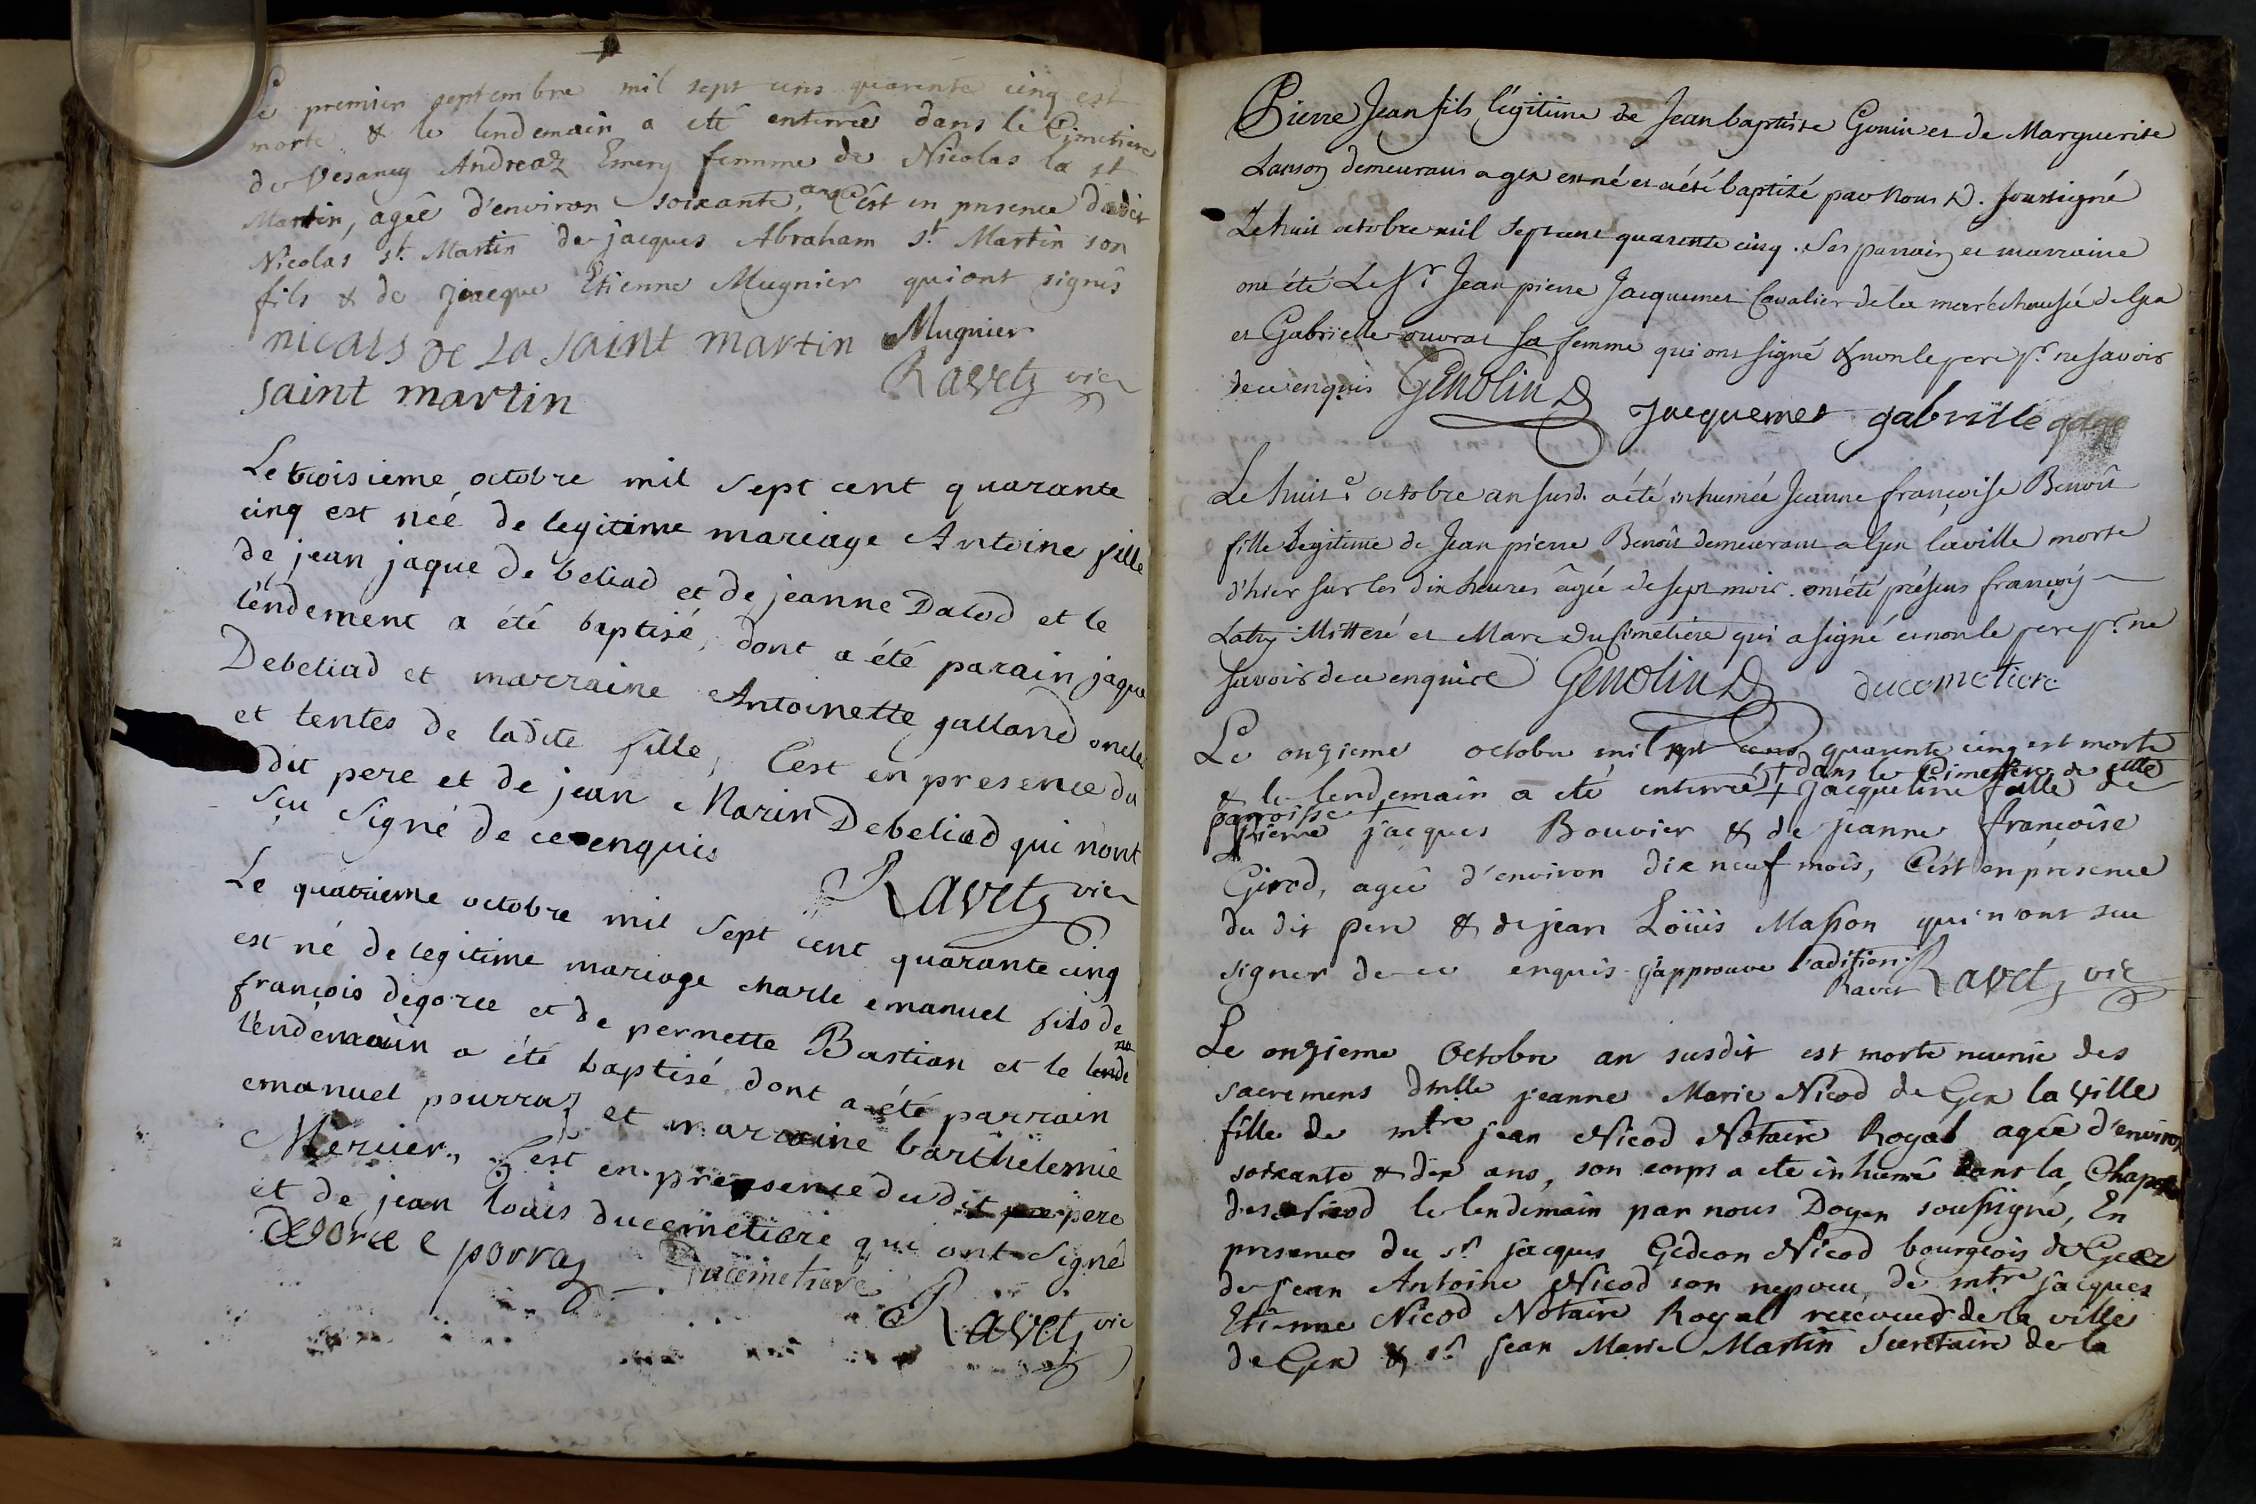 Le premier septembre mil sept cens quarente cinq est
morte & le lendemain a eté enterreê dans le Cimetiere
de Vesancy Andreaz Emery femme de Nicolas la st
Martin, ageê d'environ soixante, ans C'est en presence dudit
Nicolas st. Martin de jacques Abraham st. Martin son
fils & de jacque Etienne Mugnier qui ont signês
nicals de La saint martin Mugnier
saint martin Ravetz vic
Le troisieme octobre mil sept cent quarante
cinq est néé de legitime mariage Antoine fille
de jean jaque de beliad et de jeanne Dalod et le
lendement a été baptisé, dont a été parain jaque
Debeliad et marraine Antoinette galland oncle
et tentes de ladite fille, C'est en presence du
dit pere et de jean Marin Debeliad qui n'ont
sçu signé de ce enquis
Ravetz vic
Le quatrieme octobre mil sept cent quarante cinq
est né de legitime mariage charle emanuel fils de
françois degorce et de pernette Bastian et le
lendemain a été baptisé dont a été parrain
emanuel pourraz et marraine barthelemie
Mercier, C'est en presence du dit pere
et de jean louis ducemetiere qui ont signé
degorce e porraz Ducimetiere
Ravetz vic
Pierre Jean fils légitime de Jean baptiste Gouin et de Marguerite
Lanson demeurans a gex est né et a été baptisé par Nous D. soussigné
Le huit octobre mil sept cent quarente cinq. Ses parrain et marraine
ont été Le Sr. Jean pierre Jacquemet Cavalier de la maréchaussée de Gex
et Gabrielle ouvrat sa femme qui ont signé & non le pere pr. ne savoir
de ce enquis Genolin D Jacquemet gabrielle
Le huite. octobre an susd. a été inhumée Jeanne françoise Benoît
fille Legitime de Jean pierre Benoît demeurant a Gex la ville morte
d'hier sur les dix heures âgée de sept mois. ont été présens françois
Latty Mitteré et Marc Ducimetiére qui a signé et non le pere pr. ne
savoir de ce enquire Genolin D ducemetiere
Le onzieme octobre mil sept cens quarente cinq est morte
& le lendemain a eté enterreé † dans le Cimetiere de cette
paroisse † jacqueline fille de
pierre jacques Bouvier & de jeanne françoise
Girod, ageê d'environ dix neuf mois, C'est en présence
du dit pere & de jean Loüis Masson qui n'ont sceu
signer de ce enquis j'approuve l'adition.
Ravet Ravetz vic
Le onzieme Octobre an susdit est morte munie des
sacremens dmlle jeanne Marie Nicod de Gex la ville
fille de mtre jean Nicod Notaire Royal ageê d'environ
soixante & dix ans, son corps a eté inhumé dans la Chapelle
des Nicod le lendemain par nous Doyen soussigné, En
presence du sr. jacques Gedeon Nicod bourgeois de Gex
de jean Antoine Nicod son nepveu de mtre jacques
Etienne Nicod Notaire Royal receveur de la ville
de Gex & sr. jean Marie Martin Secretaire de la